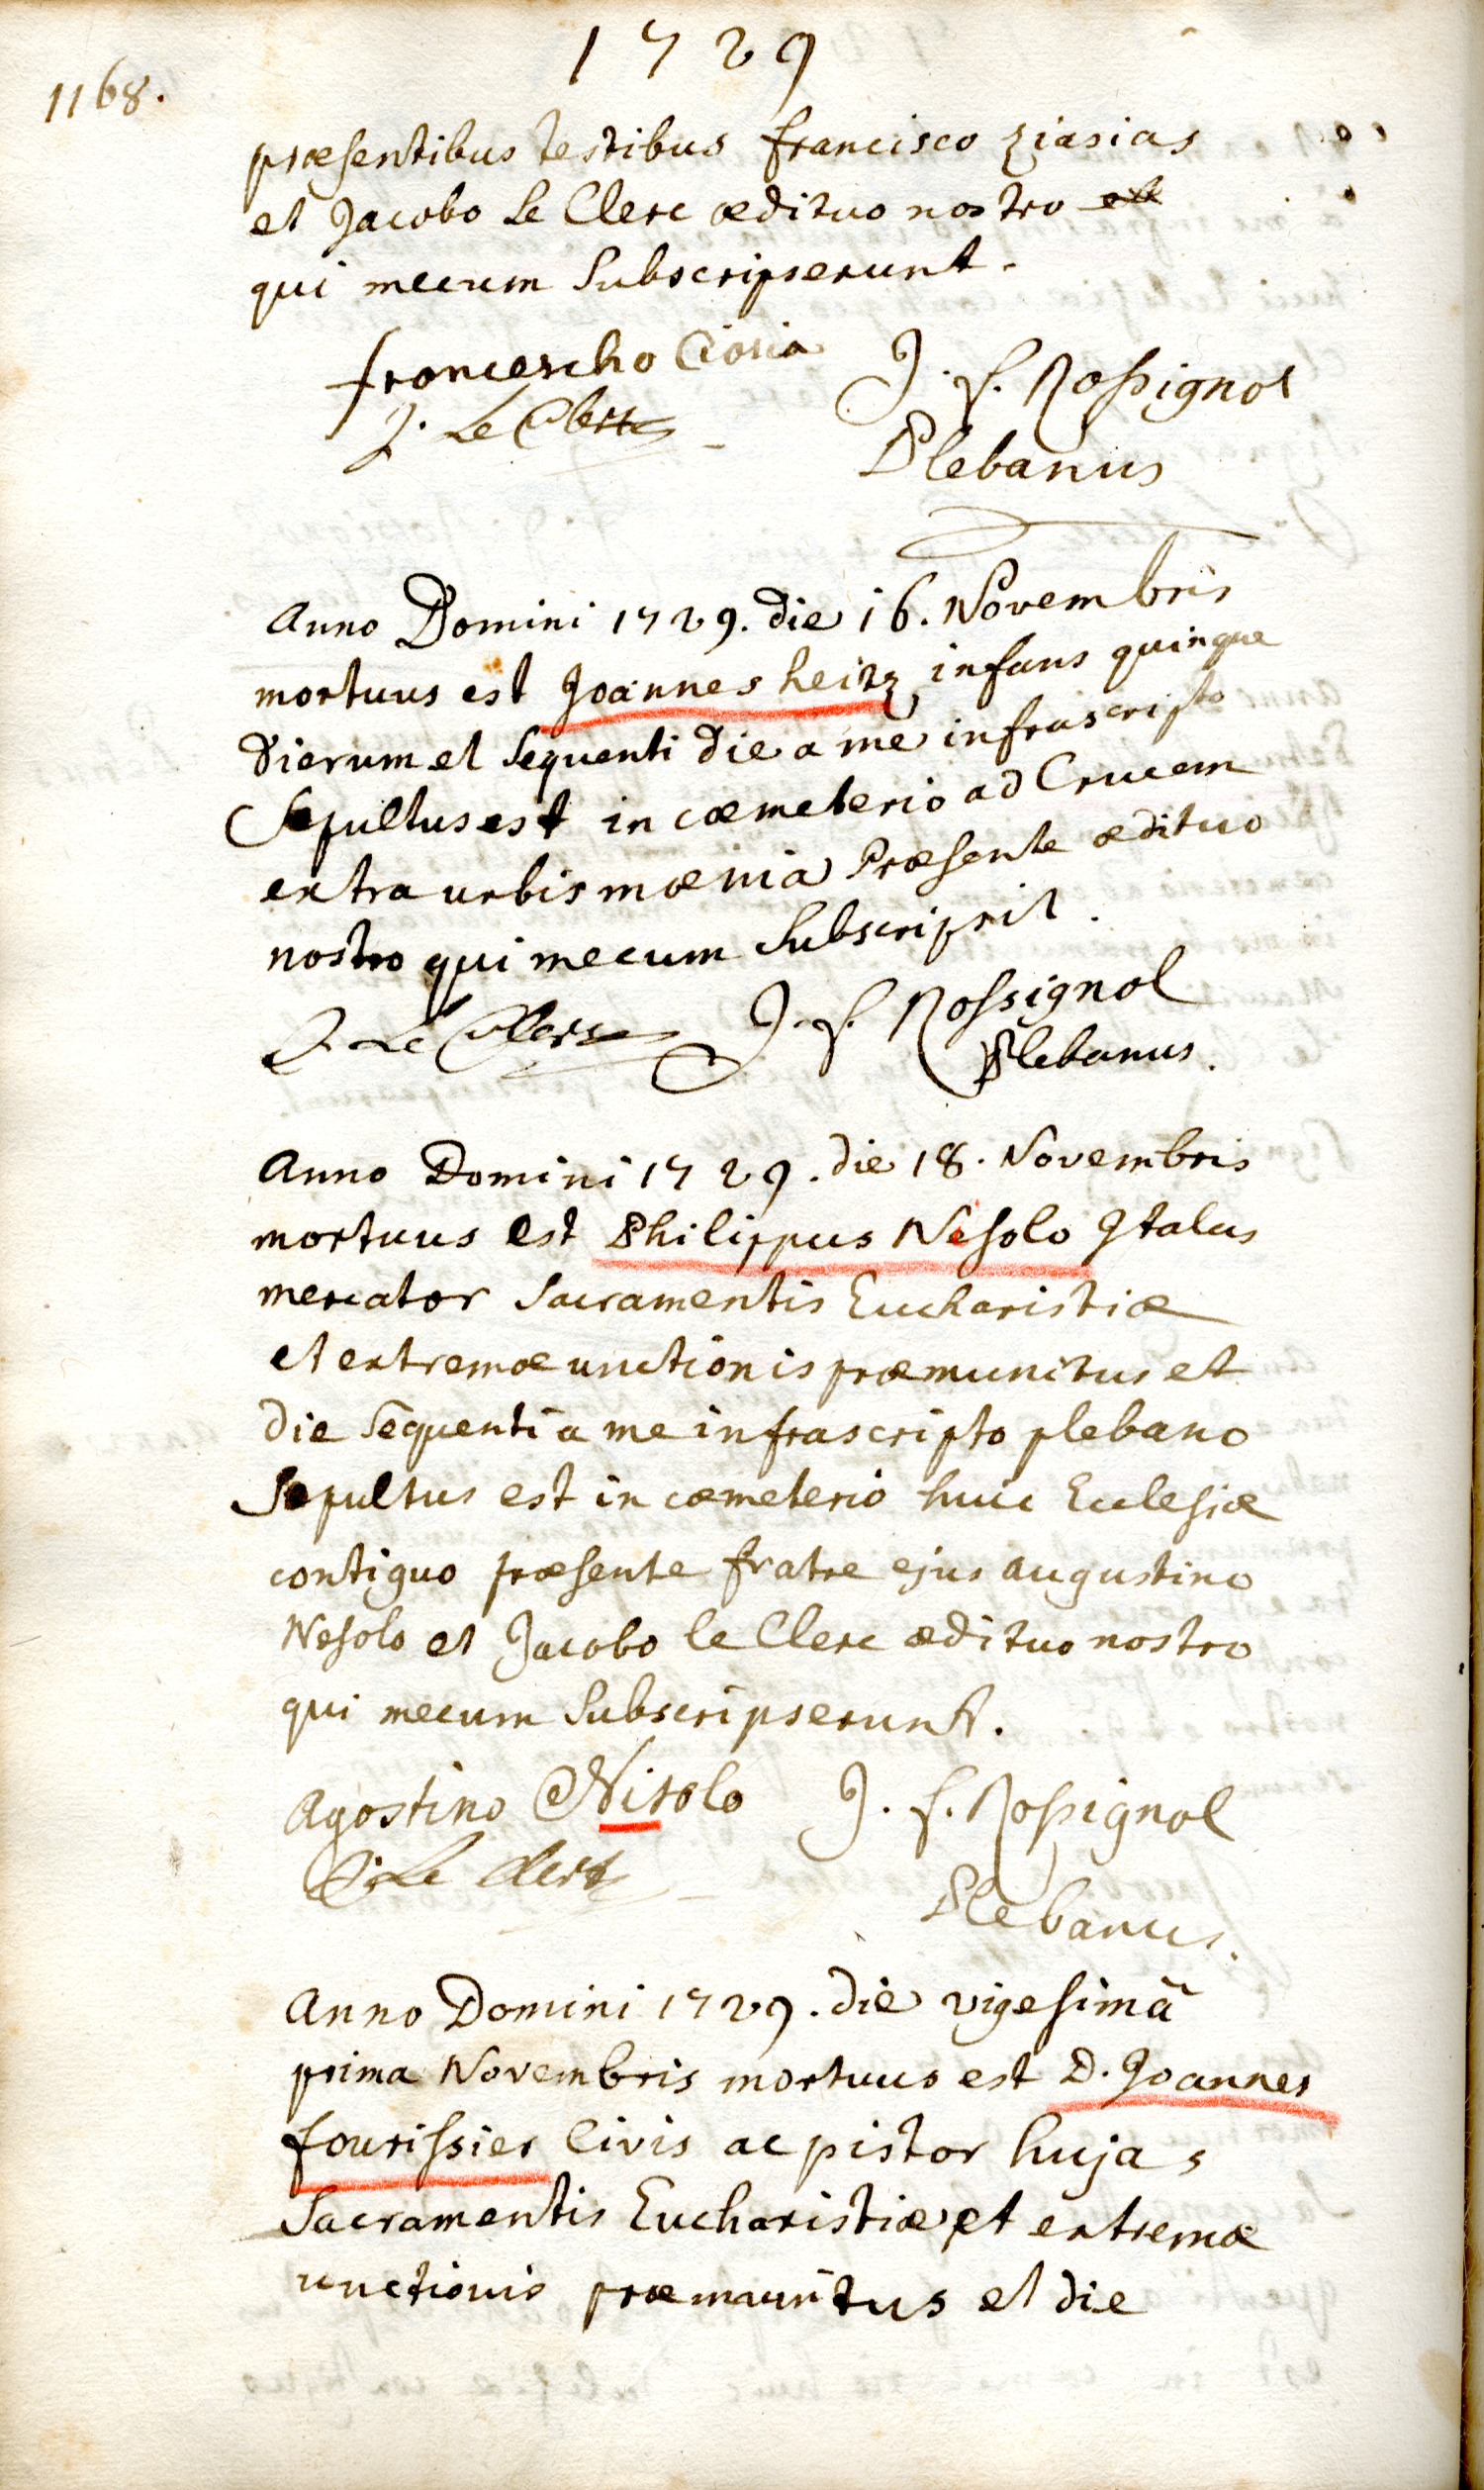 1729
1168.
præsentibus testibus francisco ziasias
et Jacobo Le Clerc ædituo nostro
qui mecum Subscripserunt.
francescho Ciosia J. f. Rossignol
J. Le Clerc Plebanus
Anno Domini 1729. die 16. Novembris
mortuus est Joannes heitz infans quinque
Dierum et Sequenti Die a me infrascripto
Sepultus est in cœmeterio ad Crucem
extra urbis mœnia Præsente ædituo
nostro qui mecum Subscripsit.
J. Le Clerc J. f. Rossignol
Plebanus.
Anno Domini 1729. die 18. Novembris
mortuus est Philippus Nesolo Italus
mercator Sacramentis Eucharistiæ
et extremæ unctionis præmunitus et
Die Sequenti a me infrascripto plebano
Sepultus est in cœmeterio huic Ecclesiæ
contiguo præsente fratre ejus augustino
Nesolo et Jacobo le Clerc ædituo nostro
qui mecum Subscripserunt.
Agostino Nisolo J. f. Rossignol
J. Le Clerc
Plebanus.
Anno Domini 1729. die vigesimâ
prima Novembris mortuus est D. Joannes
fourissier Civis ac pistor hujas
Sacramentis Eucharistiæ et extremæ
unctionis præmunitus et die